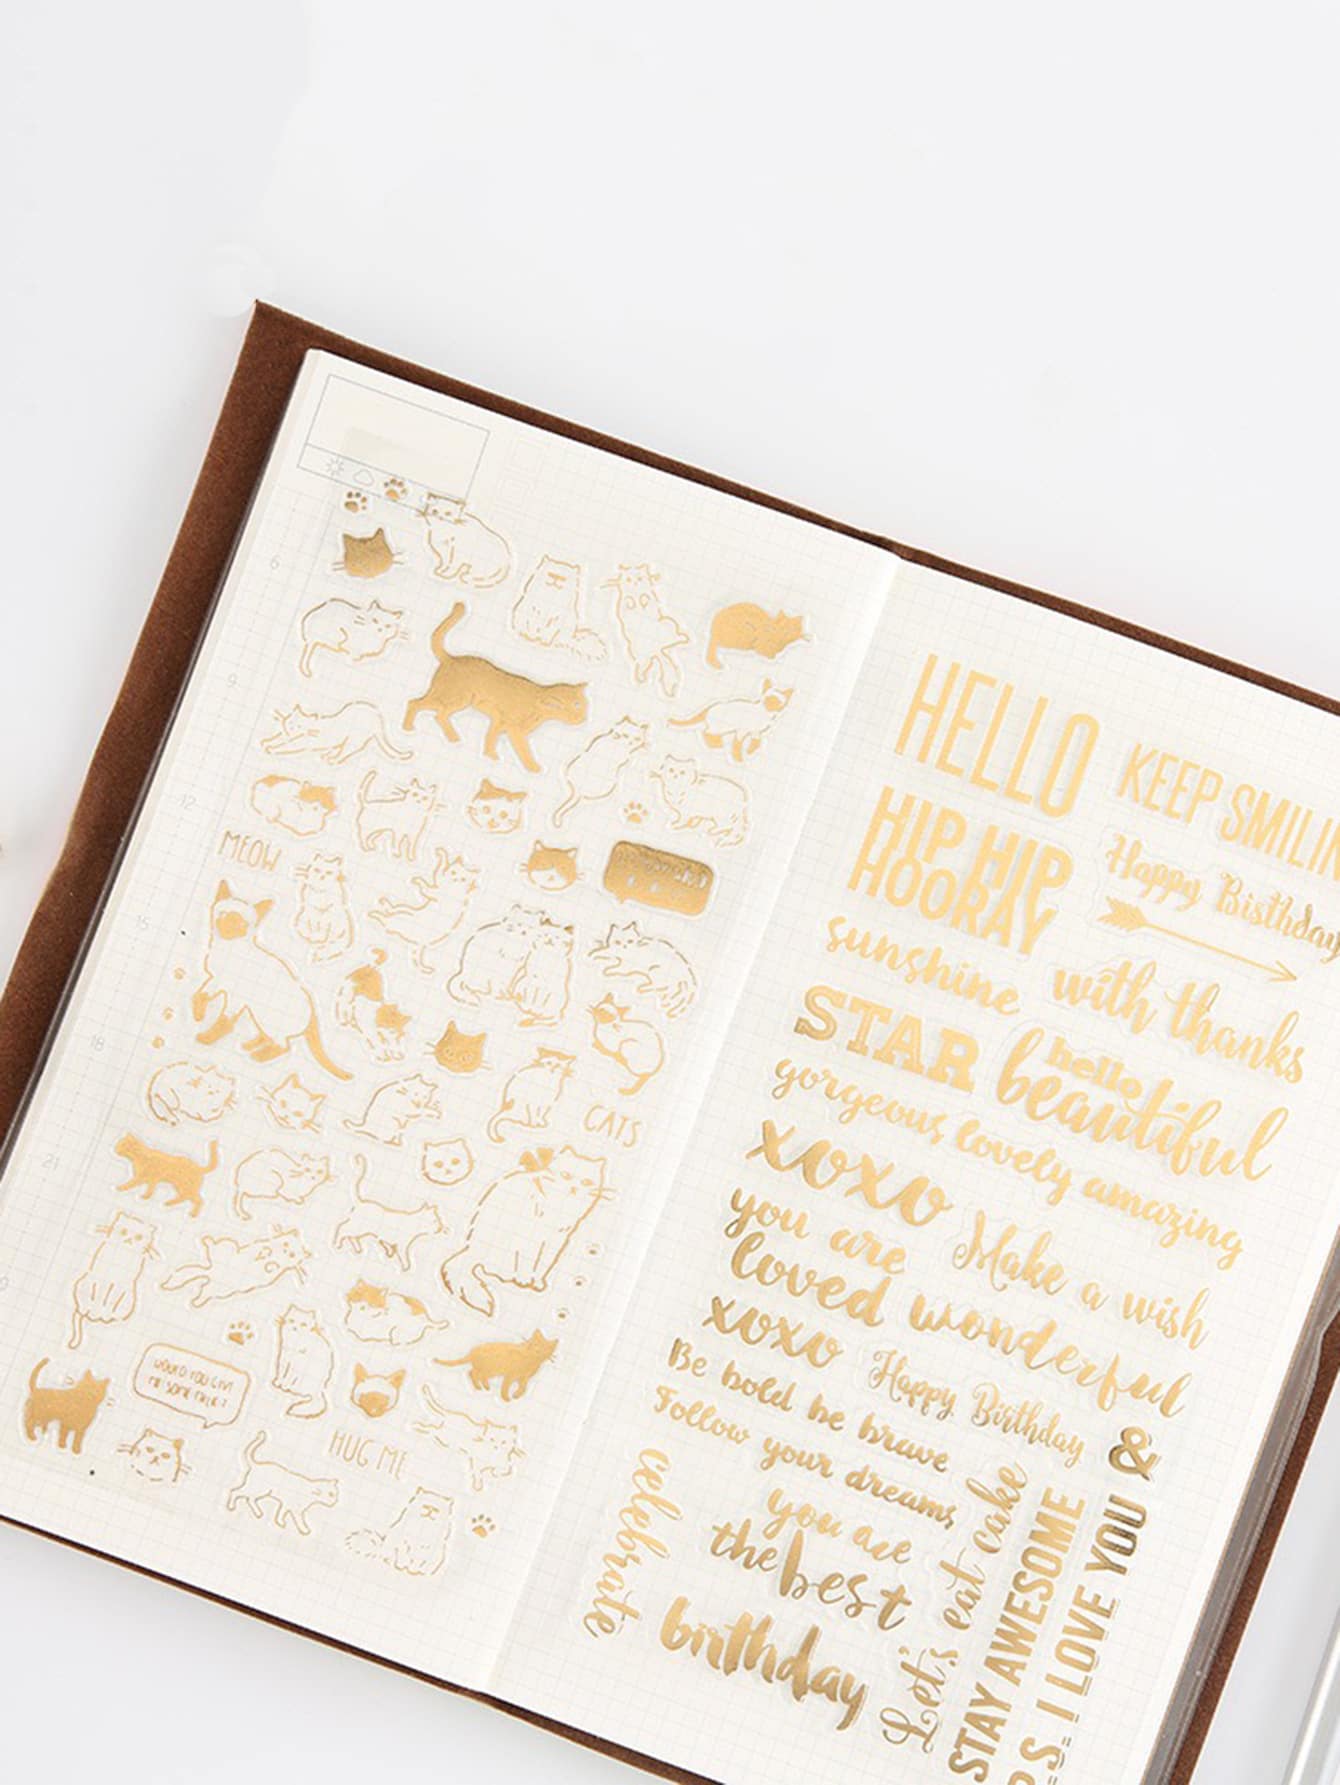 6
9
12
MEOW
15
18
CATS
21
WOULD YOU GIVE
ME SOME MILK?
HUG ME
HELLO
KEEP SMILIN
HIP HIP
HOORAY
Happy Birthday
sunshine
with thanks
STAR
hello
beautiful
gorgeous lovely amazing
xoxo
Make a wish
you are
loved
wonderful
xoxo
Happy Birthday
Be bold be brave
&
Follow your dreams
celebrate
you are
the best
birthday
Let's eat cake
STAY AWESOME
P.S. I LOVE YOU